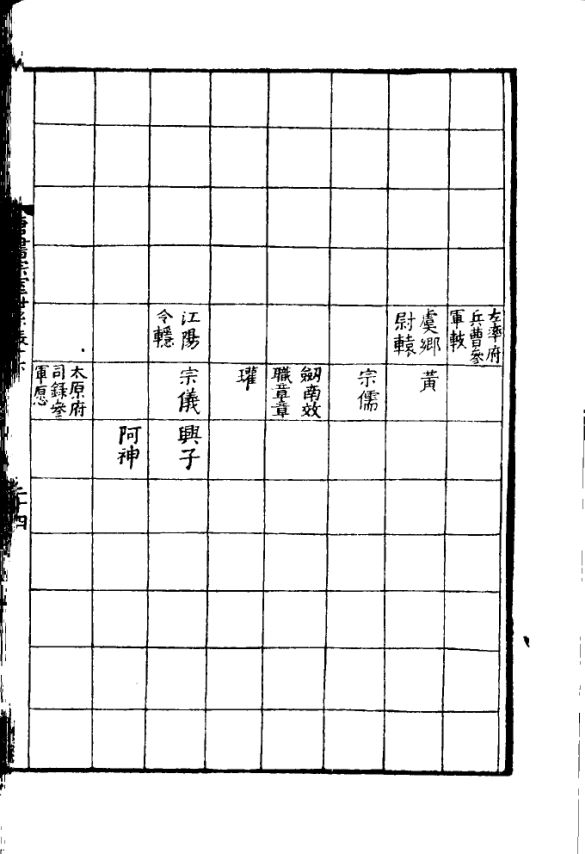 左率府
兵曹參
軍載
虞鄉
尉轅
黃
宗儒
劒南效
職章章
瓘
江陽
令轀
宗儀
興子
阿神
太原府
司錄參
軍愿